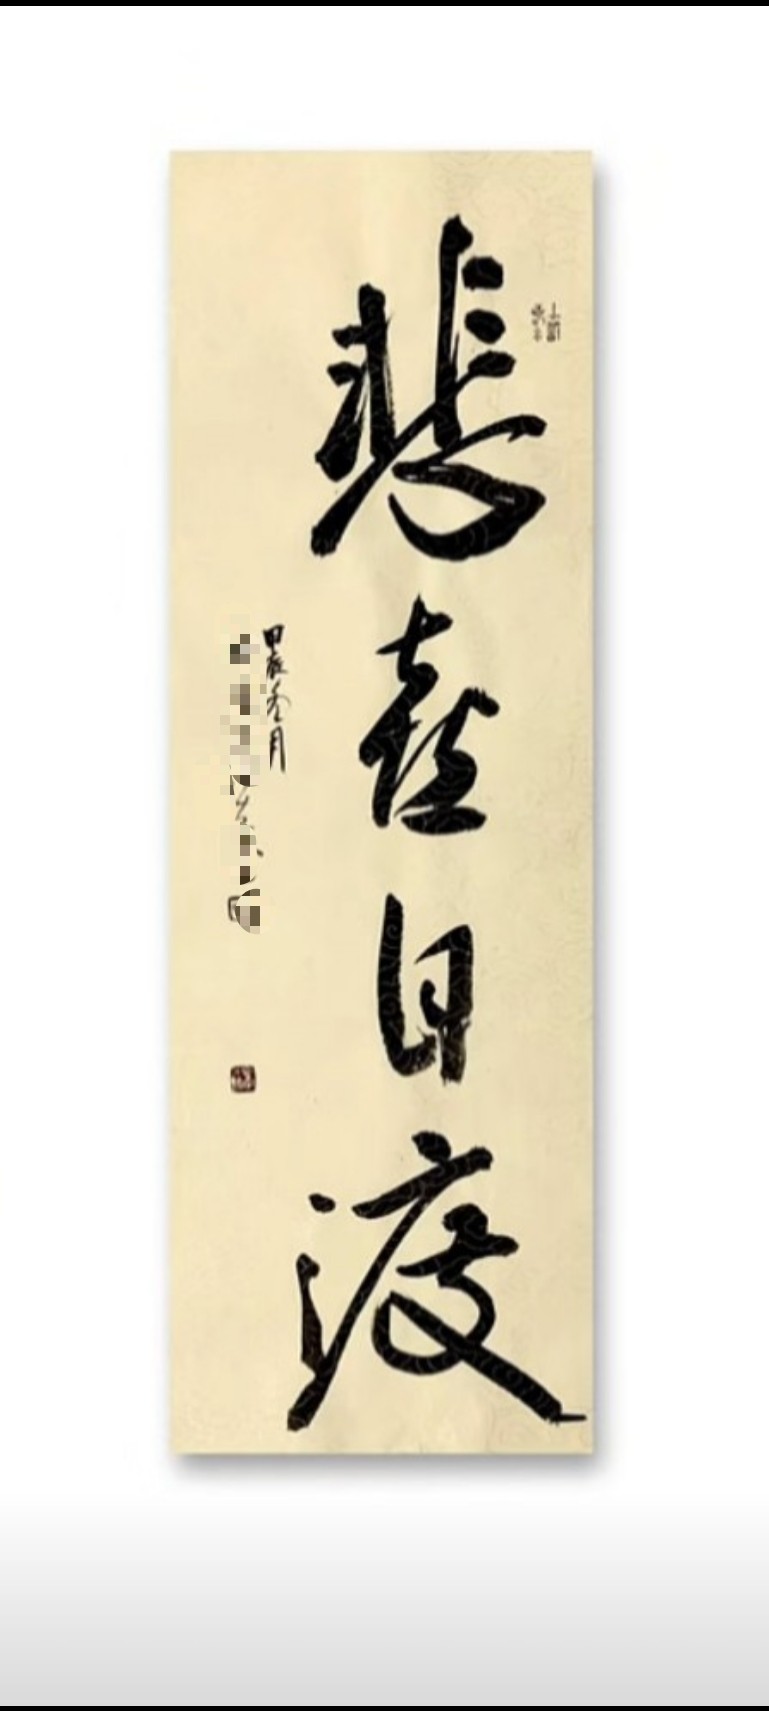 悲喜自渡
甲辰冬月